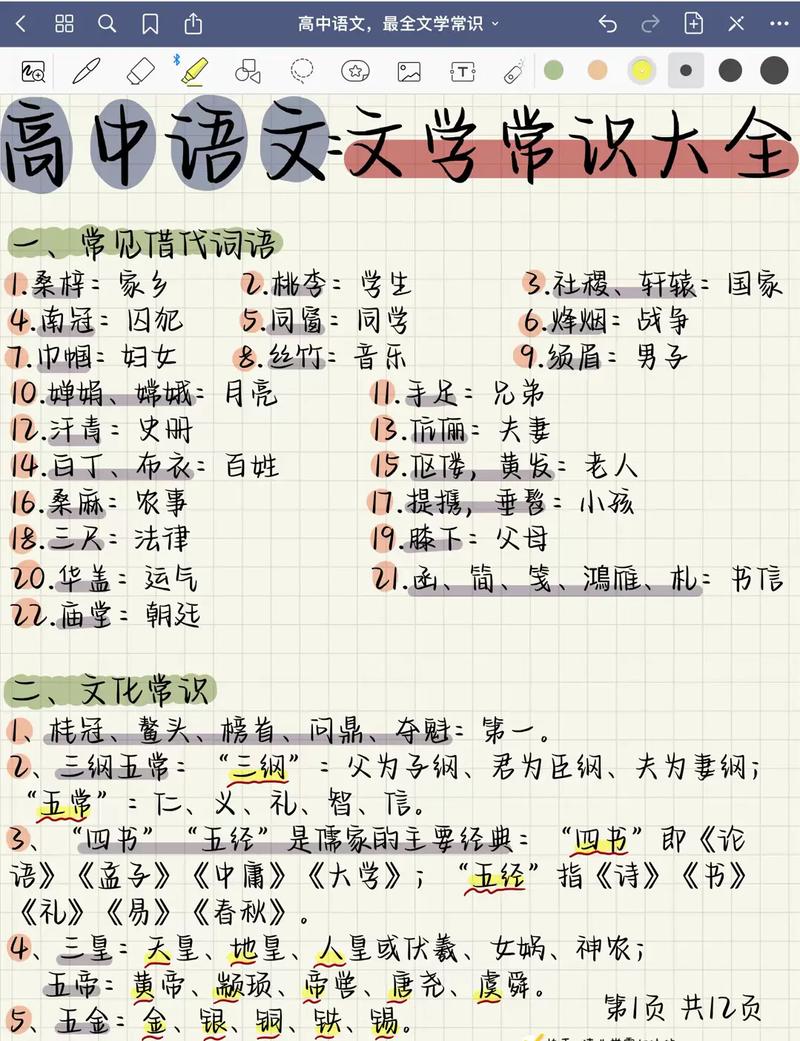 高中语文，最全文学常识
高中语文:文学常识大全
一、常见借代词语
1.桑梓：家乡 2.桃李：学生 3.社稷、轩辕：国家
4.南冠：囚犯 5.同窗：同学 6.烽烟：战争
7.巾帼：妇女 8.丝竹：音乐 9.须眉：男子
10.婵娟、嫦娥：月亮 11.手足：兄弟
12.汗青：史册 13.伉俪：夫妻
14.白丁、布衣：百姓 15.伛偻，黄发：老人
16.桑麻：农事 17.提携，垂髫：小孩
18.三尺：法律 19.膝下：父母
20.华盖：运气 21.函、简、笺、鸿雁、札：书信
22.庙堂：朝廷
二、文化常识
1、桂冠、鳌头、榜首、问鼎、夺魁：第一。
2、三纲五常：“三纲”：父为子纲、君为臣纲、夫为妻纲；
“五常”：仁、义、礼、智、信。
3、“四书”“五经”是儒家的主要经典：“四书”即《论
语》《孟子》《中庸》《大学》；“五经”指《诗》《书》
《礼》《易》《春秋》。
4、三皇：天皇、地皇、人皇或伏羲、女娲、神农；
五帝：黄帝、颛顼、帝喾、唐尧、虞舜。
5、五金：金、银、铜、铁、锡。
第1页 共12页